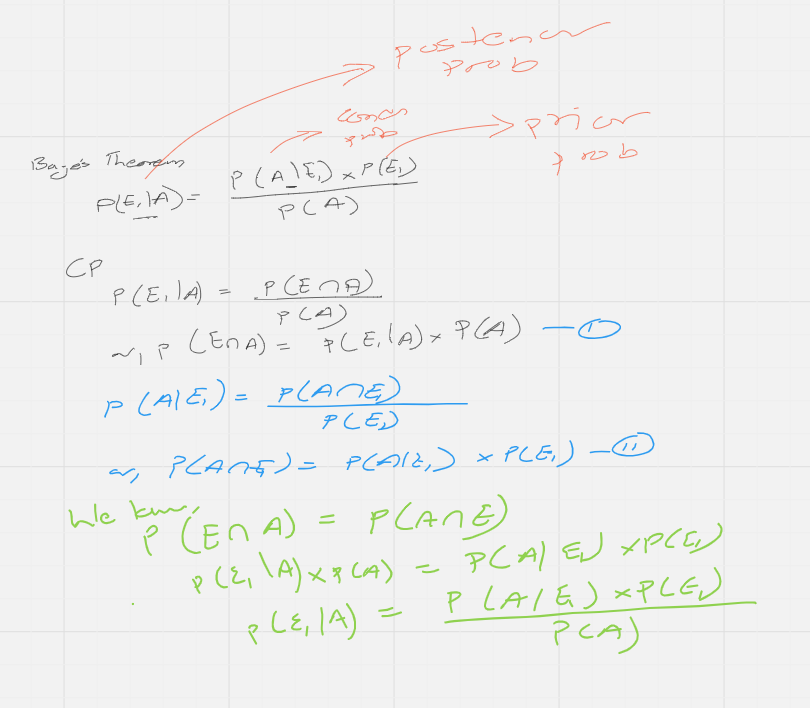 posterior
prob
cond
prob
prior
prob
Baye's Theorem
P(E₁|A) = P(A|E₁) × P(E₁)
P(A)
CP
P(E₁|A) = P(E∩A)
P(A)
or, P(E∩A) = P(E₁|A) × P(A) — (i)
P(A|E₁) = P(A∩E₁)
P(E₁)
or, P(A∩E₁) = P(A|E₁) × P(E₁) — (ii)
We know,
P(E∩A) = P(A∩E)
P(E₁|A) × P(A) = P(A|E₁) × P(E₁)
P(E₁|A) = P(A|E₁) × P(E₁)
P(A)